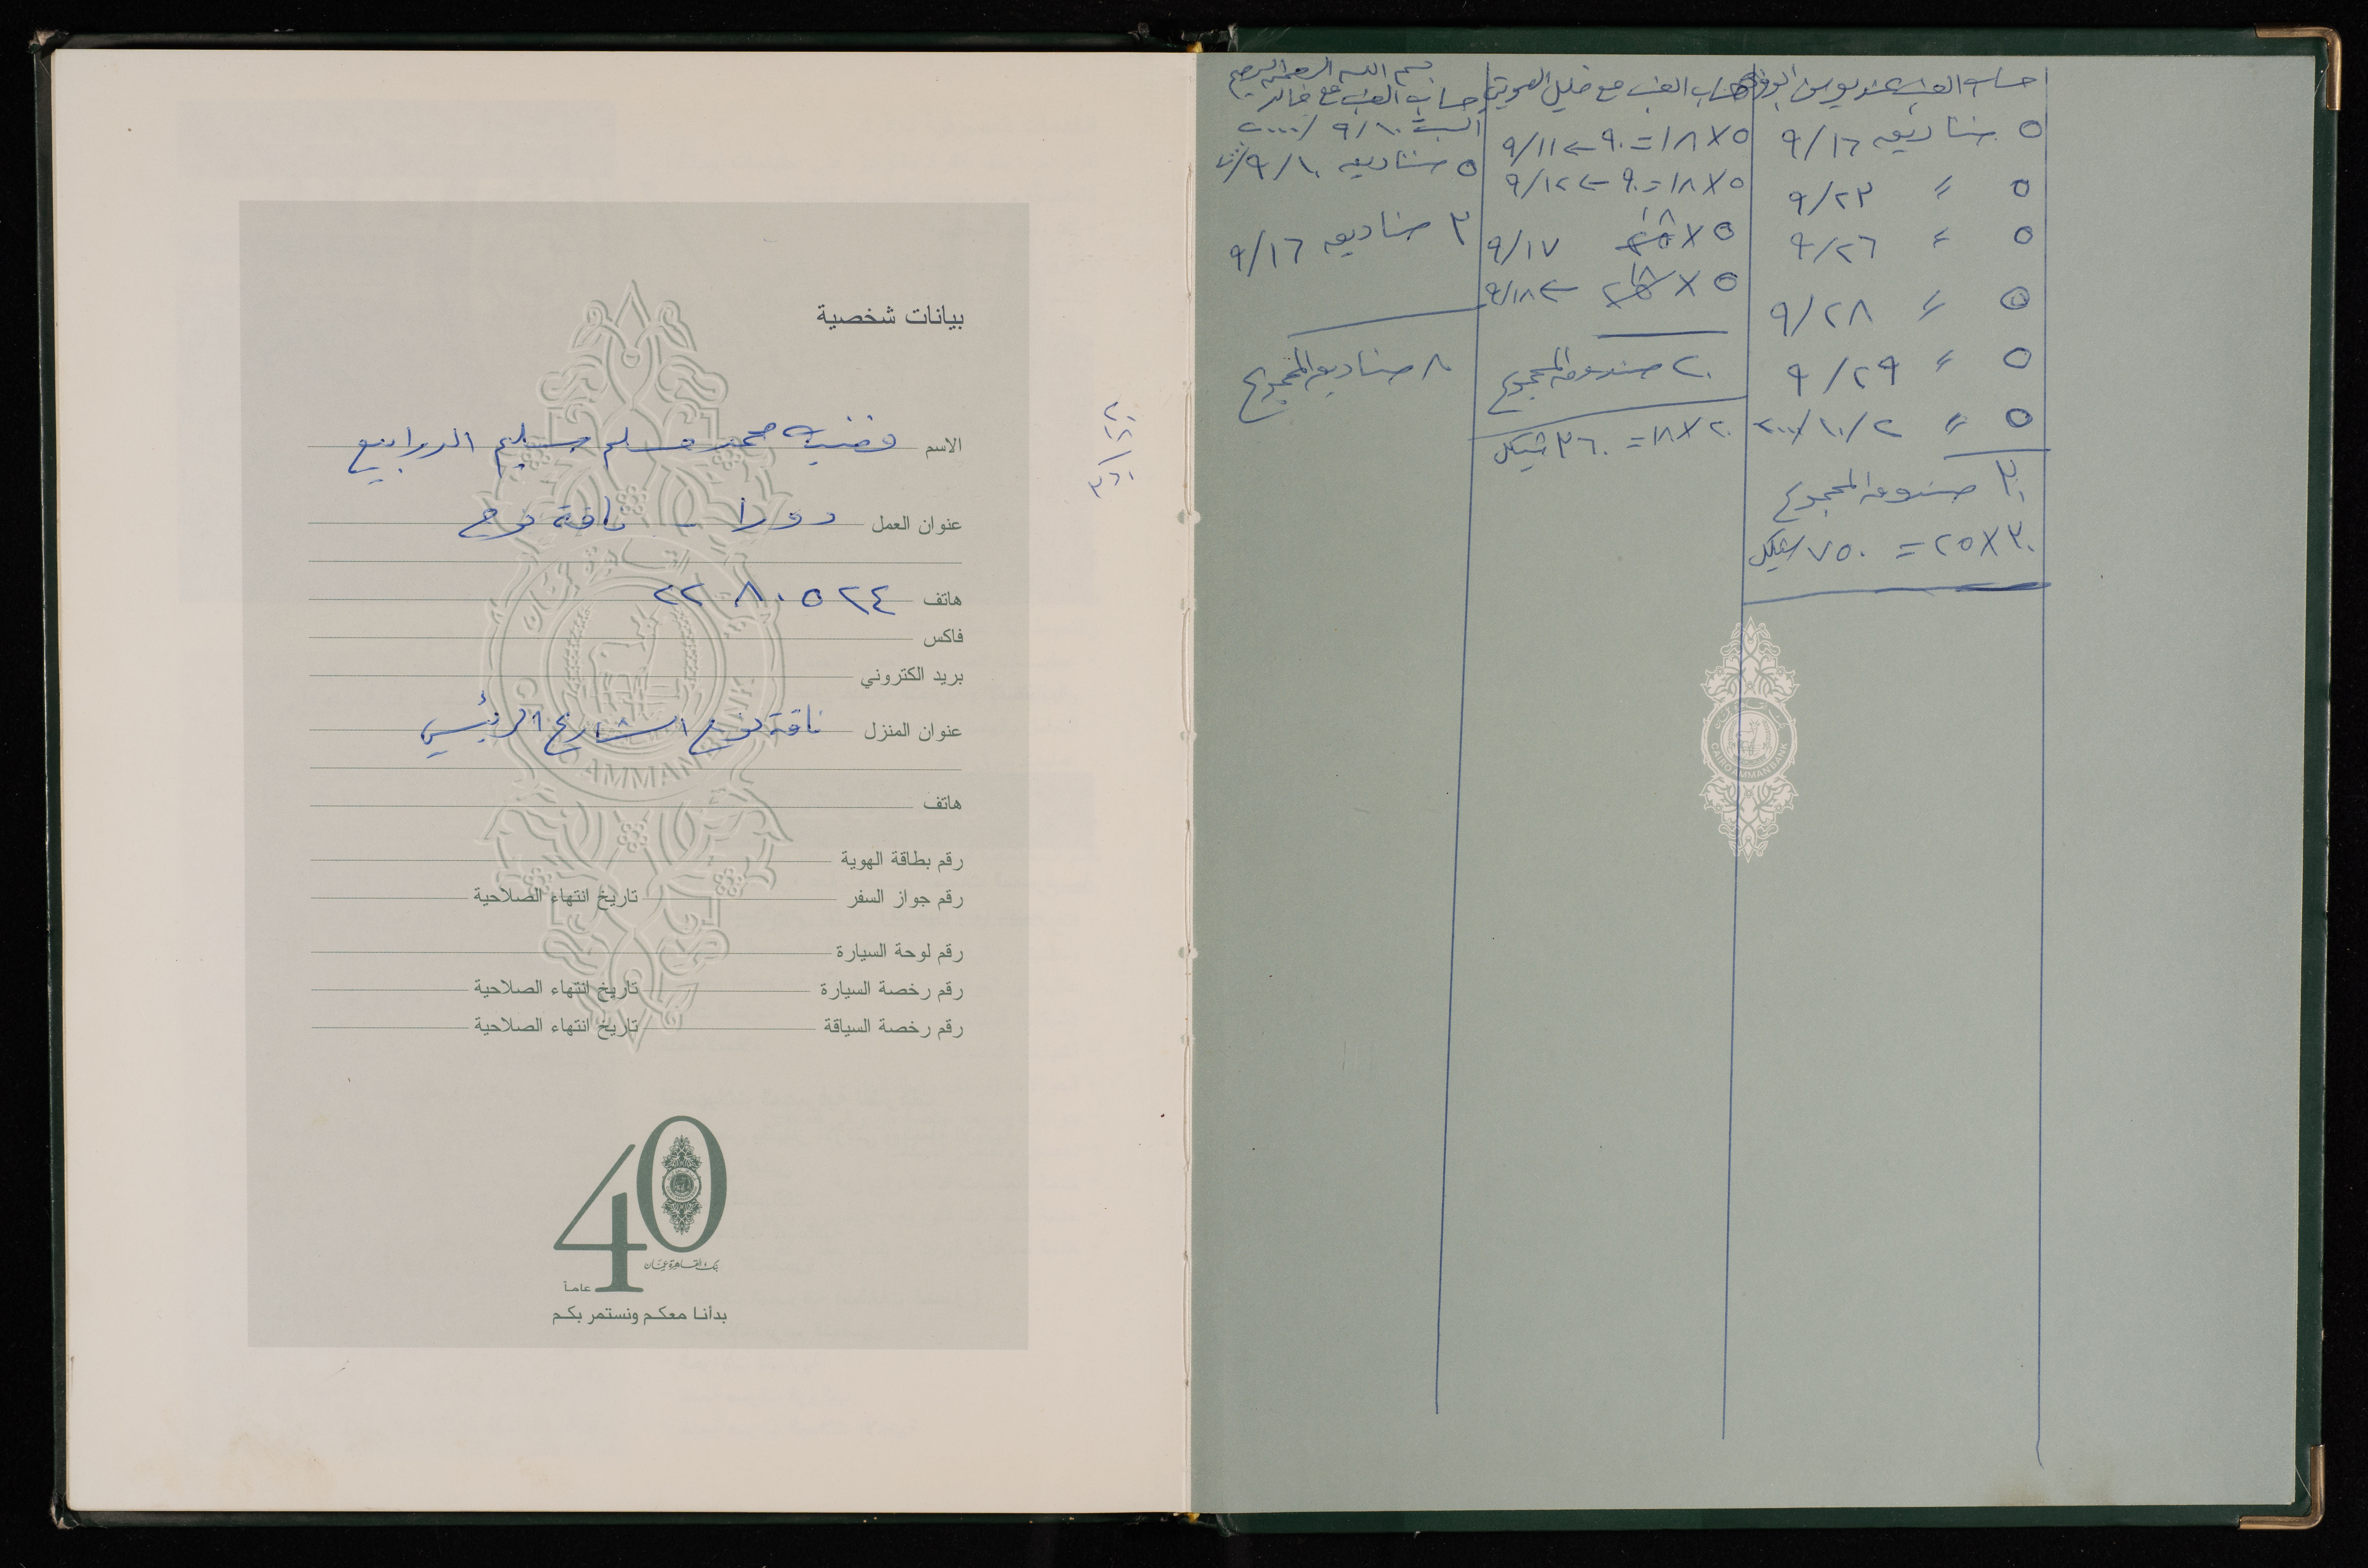 حساب العنب عند يونس ابو
٥ صناديق ٩/١٦
٥ " ٩/٢٣
٥ " ٩/٢٦
٥ " ٩/٢٨
٥ " ٩/٢٩
٥ " ٢٠٠٠/١٠/٢
٣٠ صندوق المجموع
٣٠ × ٢٥ = ٧٥٠ شيكل
حساب العنب مع خليل
٥ × ١٨ = ٩٠ ← ٩/١١
٥ × ١٨ = ٩٠ ← ٩/١٢
٥ × ١٨ ٩/١٧
٥ × ١٨ ← ٩/١٨
٢٠ صندوق المجموع
٢٠ × ١٨ = ٣٦٠ شيكل
بسم الله الرحمن الرحيم
حساب العنب مع خالد
السبت ٢٠٠٠/٩/١٠
٥ صناديق ٩/١٠
٣ صناديق ٩/١٦
٨ صناديق المجموع
CAIRO AMMAN BANK
٢٠
١٨
٣٦٠
بيانات شخصية
الاسم محمد مسلم سليم الدرابيع
عنوان العمل دورا - ناقة نوح
هاتف ٢٢٨٠٥٢٤
فاكس
بريد الكتروني
عنوان المنزل ناقة نوح الشارع الرئيسي
هاتف
رقم بطاقة الهوية
رقم جواز السفر تاريخ انتهاء الصلاحية
رقم لوحة السيارة
رقم رخصة السيارة تاريخ انتهاء الصلاحية
رقم رخصة السياقة تاريخ انتهاء الصلاحية
40
بنك القاهرة عمان
عاماً
بدأنا معكم ونستمر بكم